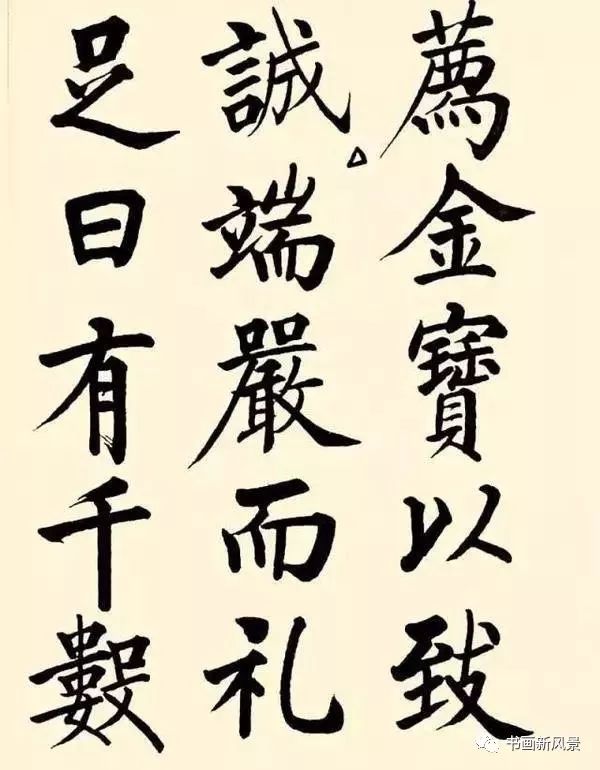 薦金寶以致
誠端嚴而礼
足日有千數
书画新风景